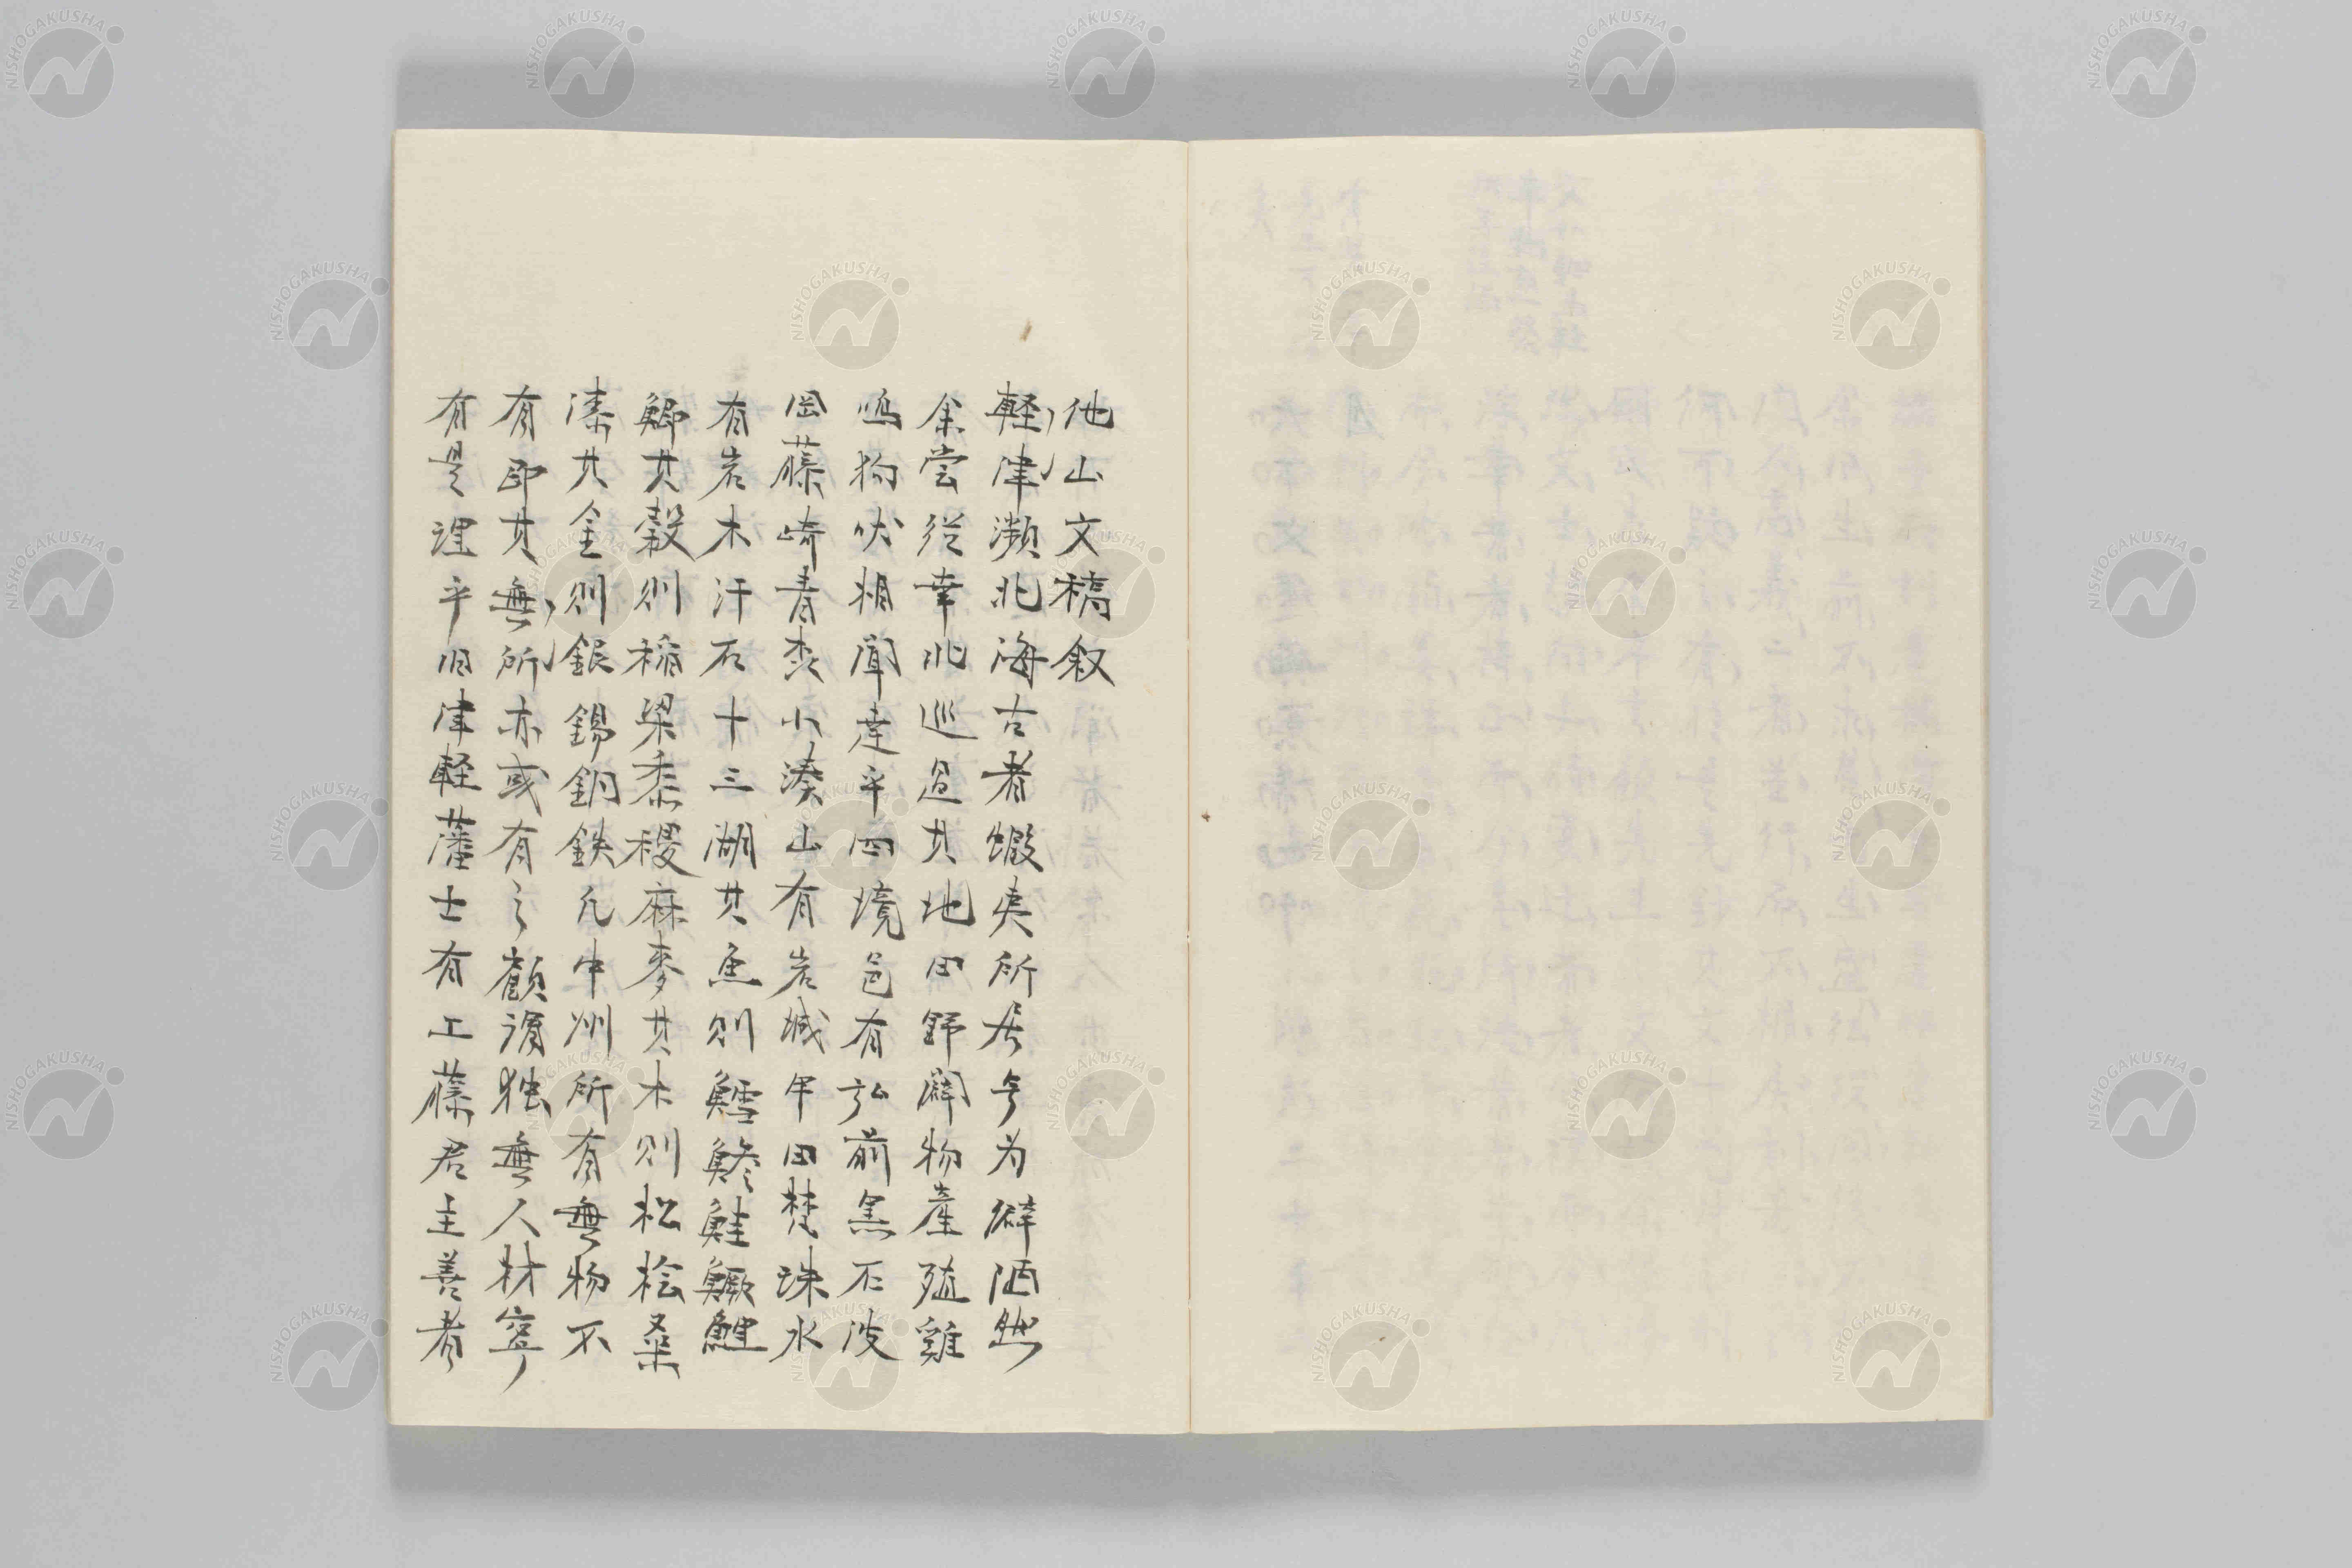 他山文稿叙
軽津瀕北海古者蝦夷所居今为僻陋然
余嘗従幸北巡過其地田野闢物産殖雞
鳴狗吠相聞達乎四境邑有弘前黒石波
岡藤崎青森小湊山有岩城甲田梵珠水
有岩木汗石十三湖其魚則鱈鱶鮭鱖鯉
鯽其穀則稲梁黍稷麻麥其木則松桧桑
漆其金則銀錫銅鉄凡中州所有無物不
有即其無所亦或有之顧謂独無人材寧
有是理乎旧津軽藩士有工藤君主善者
NISHOGAKUSHA